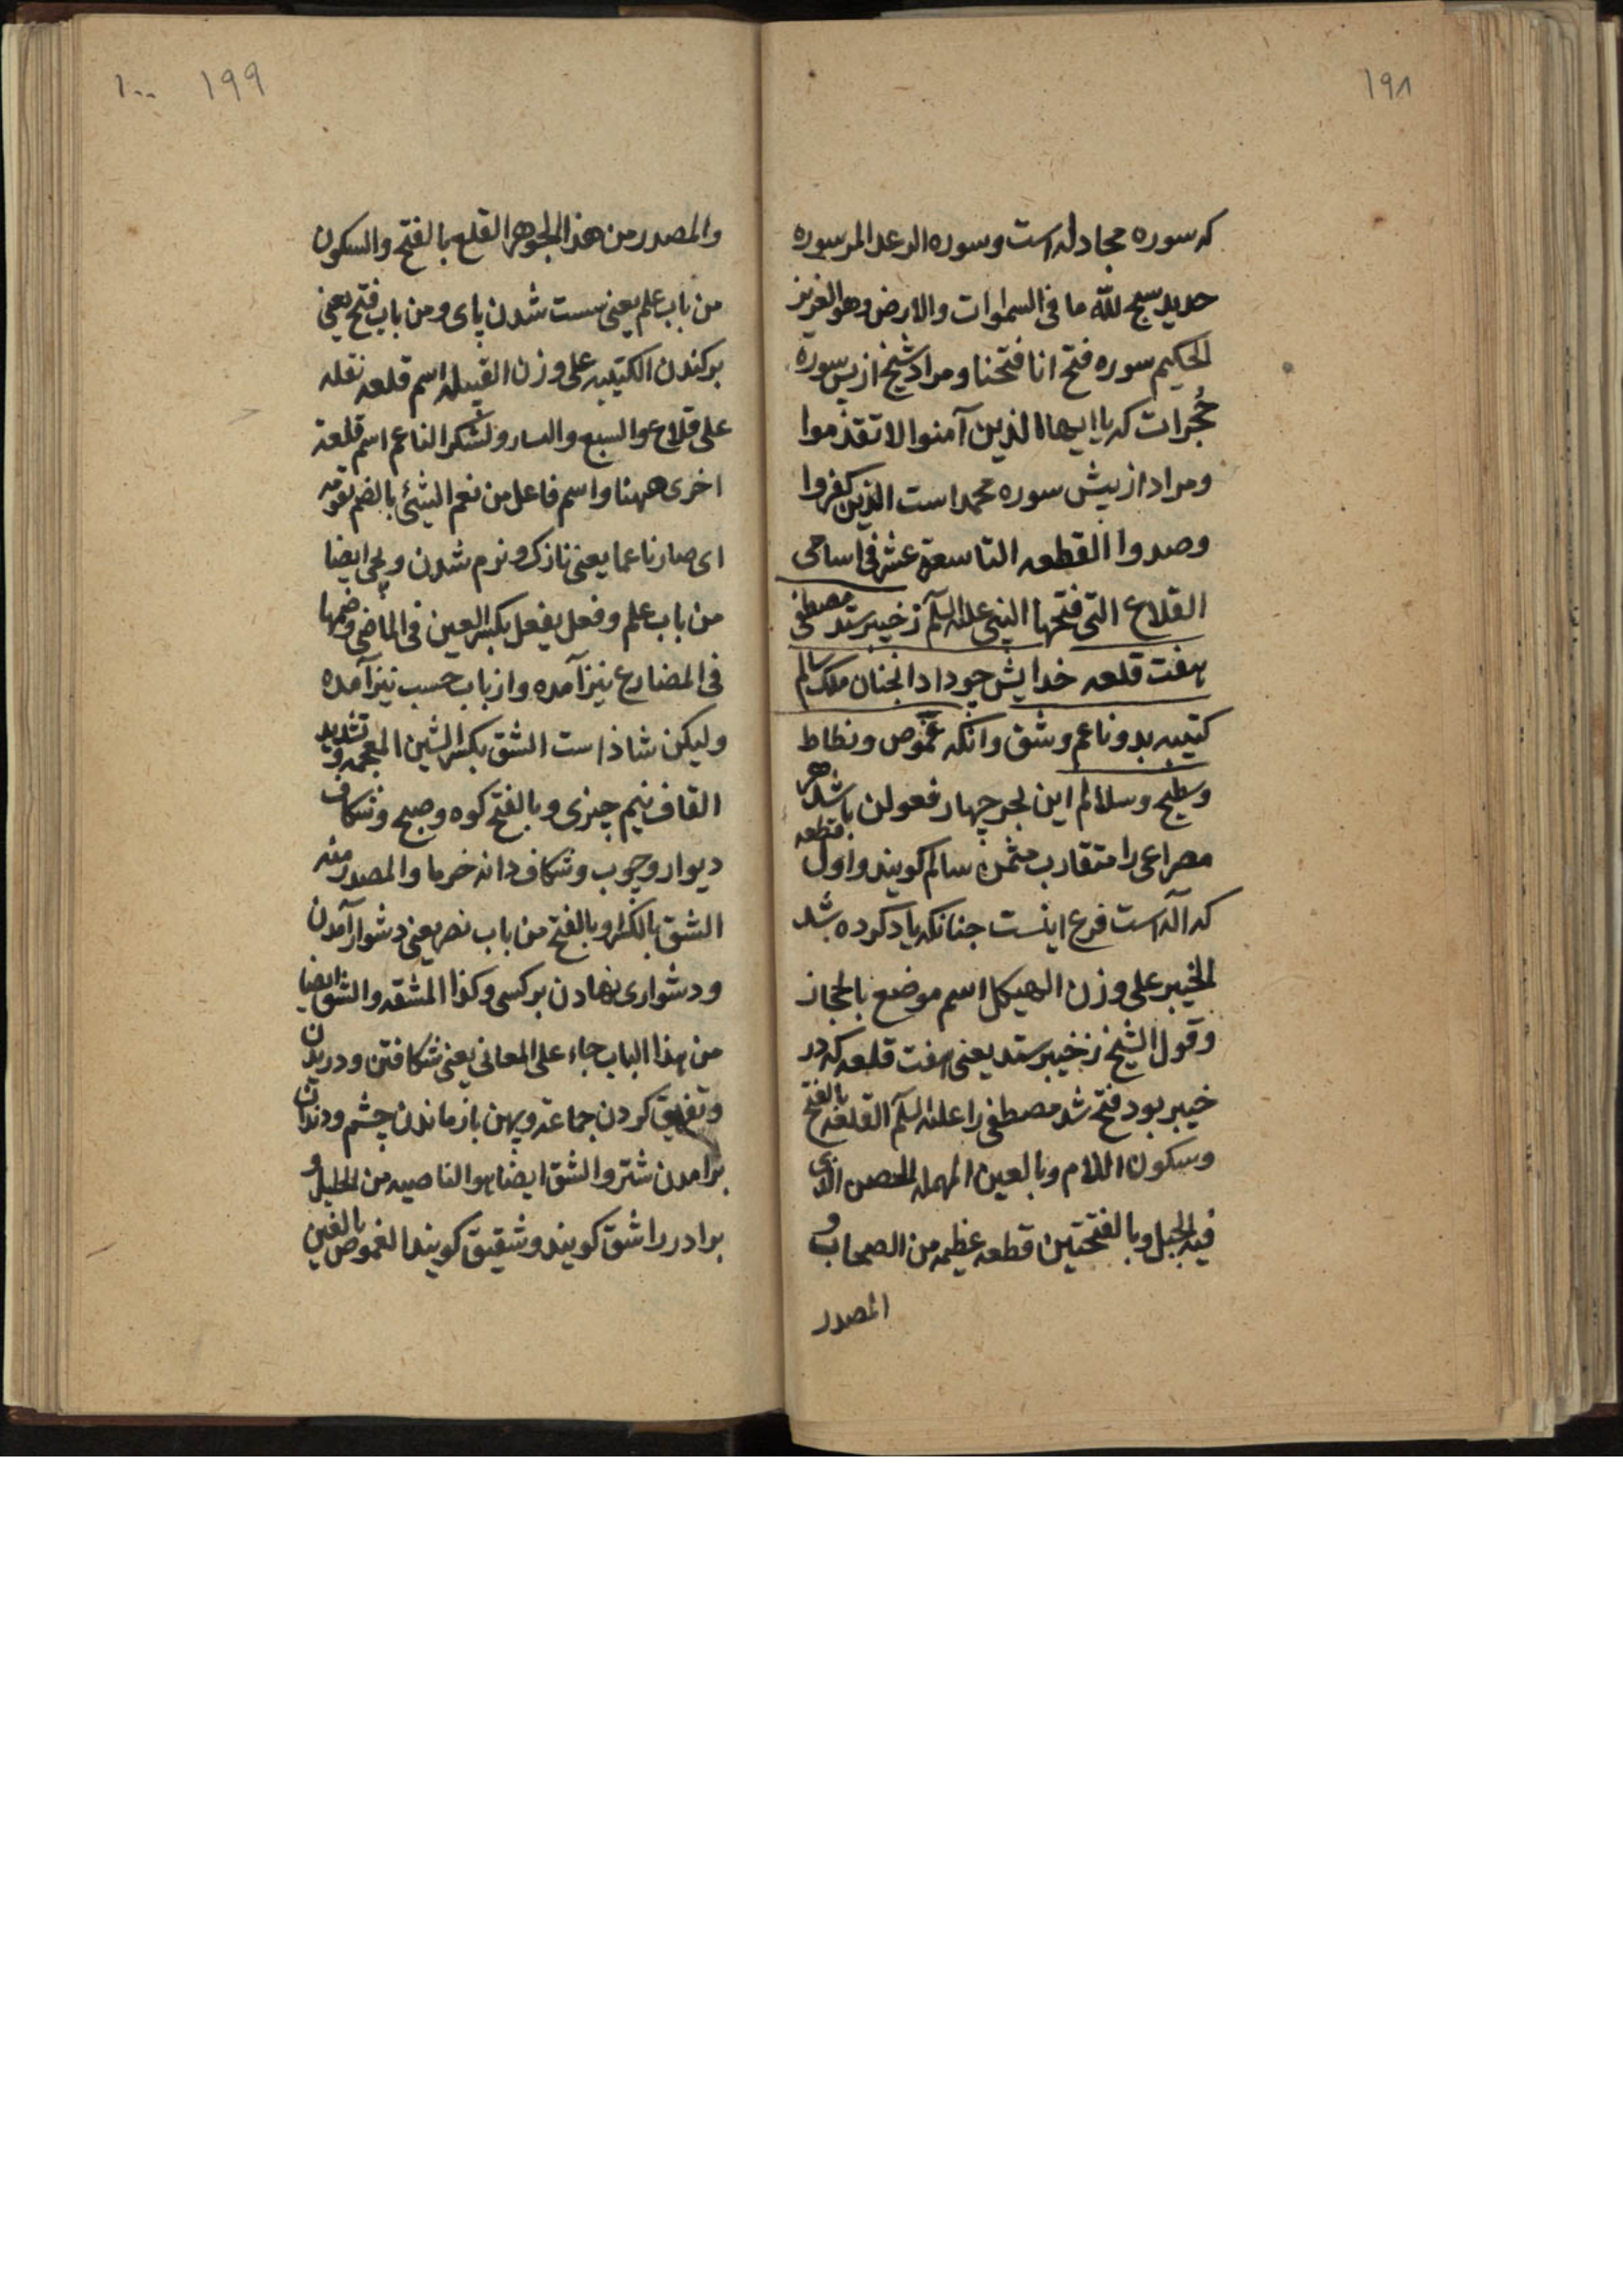 ۱۹۸
که سوره مجادله است و سوره الرعد المر سوره
حدید سبح لله ما فی السموات والارض وهو العزیز
الحکیم سوره فتح انا فتحنا و مراد شیخ از پس سورة
حُجرات که یا ایها الذین آمنوا لا تقدموا
و مراد از پیش سوره محمد است الذین کفروا
وصدوا القطعه التاسعة عشر فی اسامی
القلاع التی فتحها النبی علیه السلم ز خیبر ستد مصطفی
هفت قلعه خدایش چو داد انجنان ملک سالم
کتیبه بد و ناعم و شق و انکه غموص و نطاط
و سطیح و سلالم این بحر چهار فعولن باشد هر
مصراعی را متقارب مثمن سالم کویند و اول قطعه
که آله است فرع اینست جنانکه یاد کرده شد
الخیبر علی وزن الهیکل اسم موضع بالحجاز
و قول الشیخ ز خیبر ستد یعنی هفت قلعه که در
خیبر بود فتح شد مصطفی را علیه السلم القلعه بالفتح
وسکون اللام وبالعین المهمله الحصن الذی
فیه الجبل وبالفتحتین قطعه عظیمه من السحاب و
المصدر
۱۹۹ ۱۰۰
والمصدر من هذا الجوهر القلع بالفتح والسکون
من باب علم یعنی سست شدن پای و من باب فتح یعنی
برکندن الکتیبه علی وزن القبیله اسم قلعه نقله
علی قلاع والسبع ولشکر الناعم اسم قلعة
اخری ههنا واسم فاعل من نعم الشئ بالضم نعومة
ای صار ناعما یعنی نازک و نرم شدن و یجی ایضا
من باب علم و فعل یفعل بکسر العین فی الماضی وضمها
فی المضارع نیز آمده و از باب حسب نیز آمده
ولیکن شاذ است الشق بکسر الشین المعجمه و تشدید
القاف نیم چیزی و بالفتح کوه و صبح و شکاف
دیوار و چوب و شکاف دانه خرما والمصدر منه
الشق بالکسر و بالفتح من باب نصر یعنی دشوار آمدن
و دشواری نهادن بر کسی و کذا المشقه والشق ایضا
من هذا الباب جاء علی المعانی یعنی شکافتن و دریدن
و تفریق کردن جماعة و پهن باز ماندن چشم و دندان
برامدن شتر والشق ایضا هو الناصیه من الخیل و
برادر را شق کویند و شقیق کویند الغموص بالغین